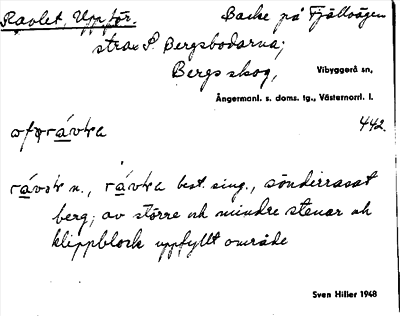 Ravlet, Uppför. Backe på Fjällvägen
strax S. Bergsbodarna;
Bergs skog, Vibyggerå sn,
Ångermanl. s. doms. tg., Västernorrl. l.
442.
n., best. sing., sönderrasat
berg; av större och mindre stenar och
klippblock uppfyllt område
Sven Hiller 1948